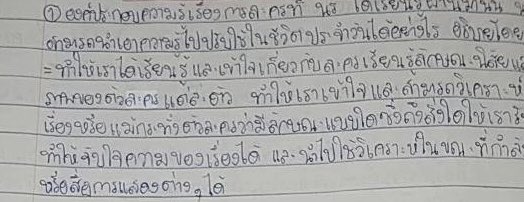 ① องค์ประกอบความรู้เรื่องการละครที่ นร ได้เรียนรู้ผ่านมานั้น
สามารถนำเอาความรู้ไปปรับใช้ในชีวิตประจำวันได้อย่างไร อธิบายโดย
= ทำให้เราได้เรียนรู้และเข้าใจเกี่ยวกับละครเรียนรู้ลักษณะนิสัยแ
ของตัวละครแต่ละตัว ทำให้เราเข้าใจและสามารถวิเคราะห์
เรื่องหรือแม้กระทั่งตัวละครว่ามีลักษณะแบบใดซึ่งดึงดูดให้เรา
ทำให้จับใจความของเรื่องได้ และนำไปใช้วิเคราะห์ในขณะที่กำลั
หรือสื่อการแสดงต่างๆได้